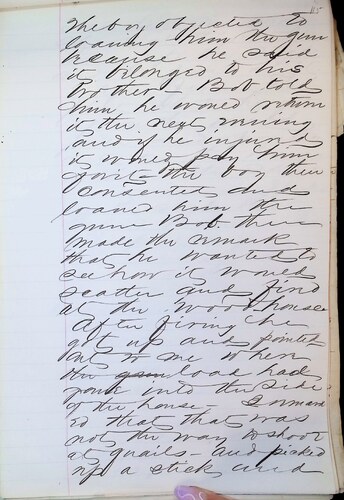 The boy objected to
loaning him the gun
because he said
it belonged to his
brother - Bob told
him he would return
it the next morning
and if he injured
it would pay him
for it - the boy then
consented and
loaned him the
gun Bob then
made the remark
that he wanted to
see how it would
scatter and fired
at the wood house
After firing he
got up and pointed
out to me where
the load had
gone into the side
of the house - I remark
ed that that was
not the way to shoot
at quails - and picked
up a stick and